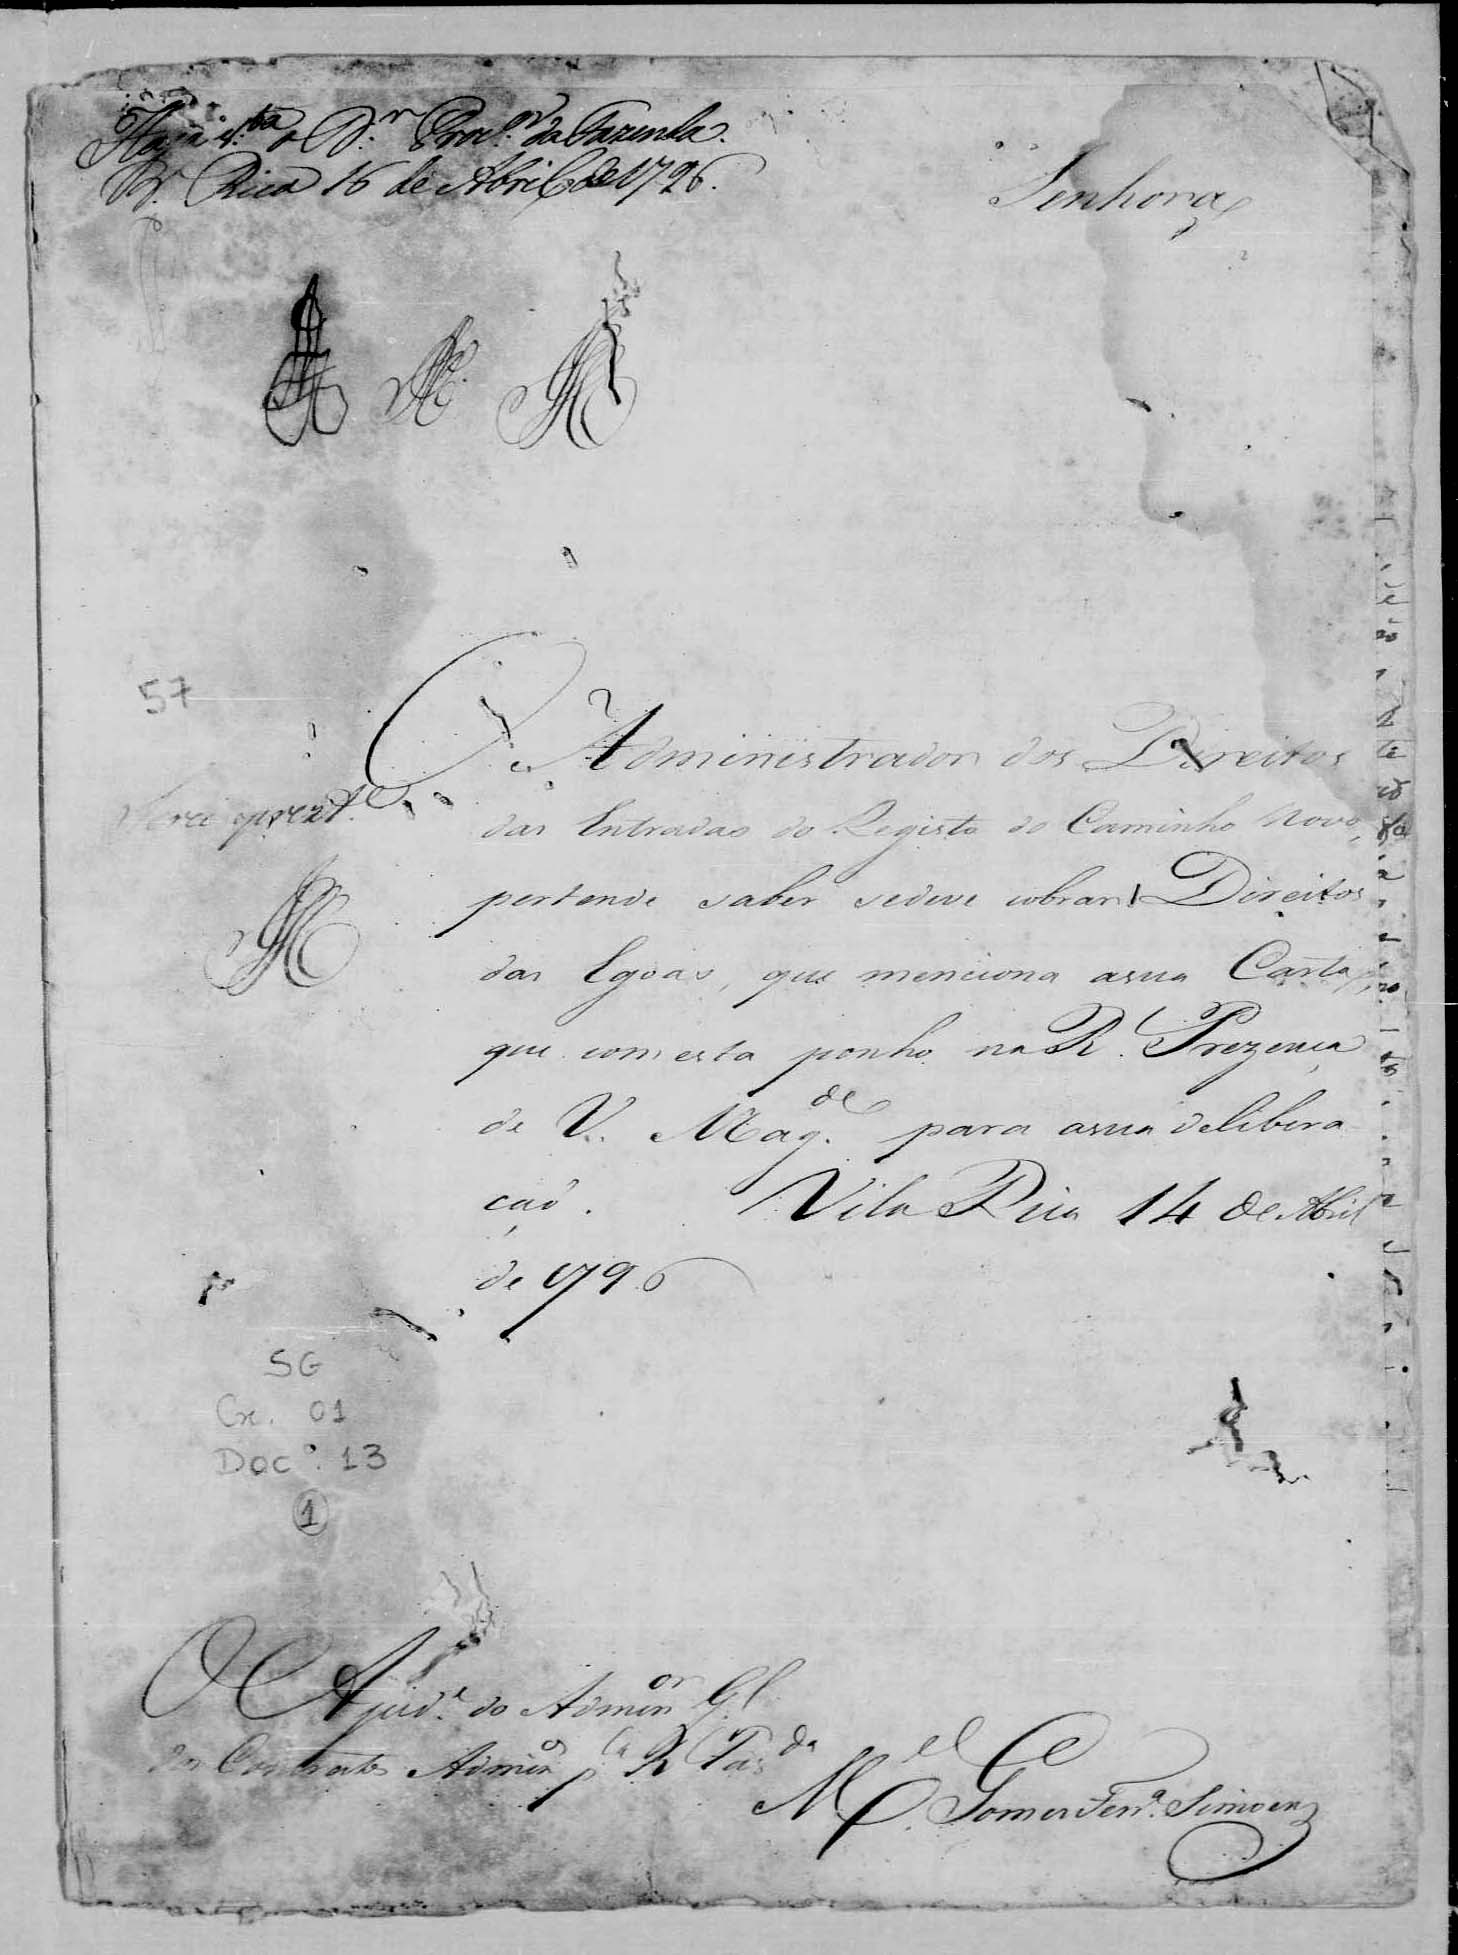 Haja v.ta o D.r Proc.or da Fazenda.
V.a Rica 16 de Abril de 1796.
Senhora
57
O Administrador dos Direitos
das Entradas do Registo do Caminho Novo,
pertende saber sedeve cobrar Direitos
das Egoas, que menciona asua Carta,
que com esta ponho na R. Prezença
de V. Mag.de para asua delibera
çaõ. Vila Rica 14 de Abril
de 1796
prezt.e
SG
Cx. 01
Doc.: 13
1
O Ajud.e do Admin.or G.l
dos Contratos Admin.os p.la R. Faz.da
M.el Gomes Ferr.a Simoens